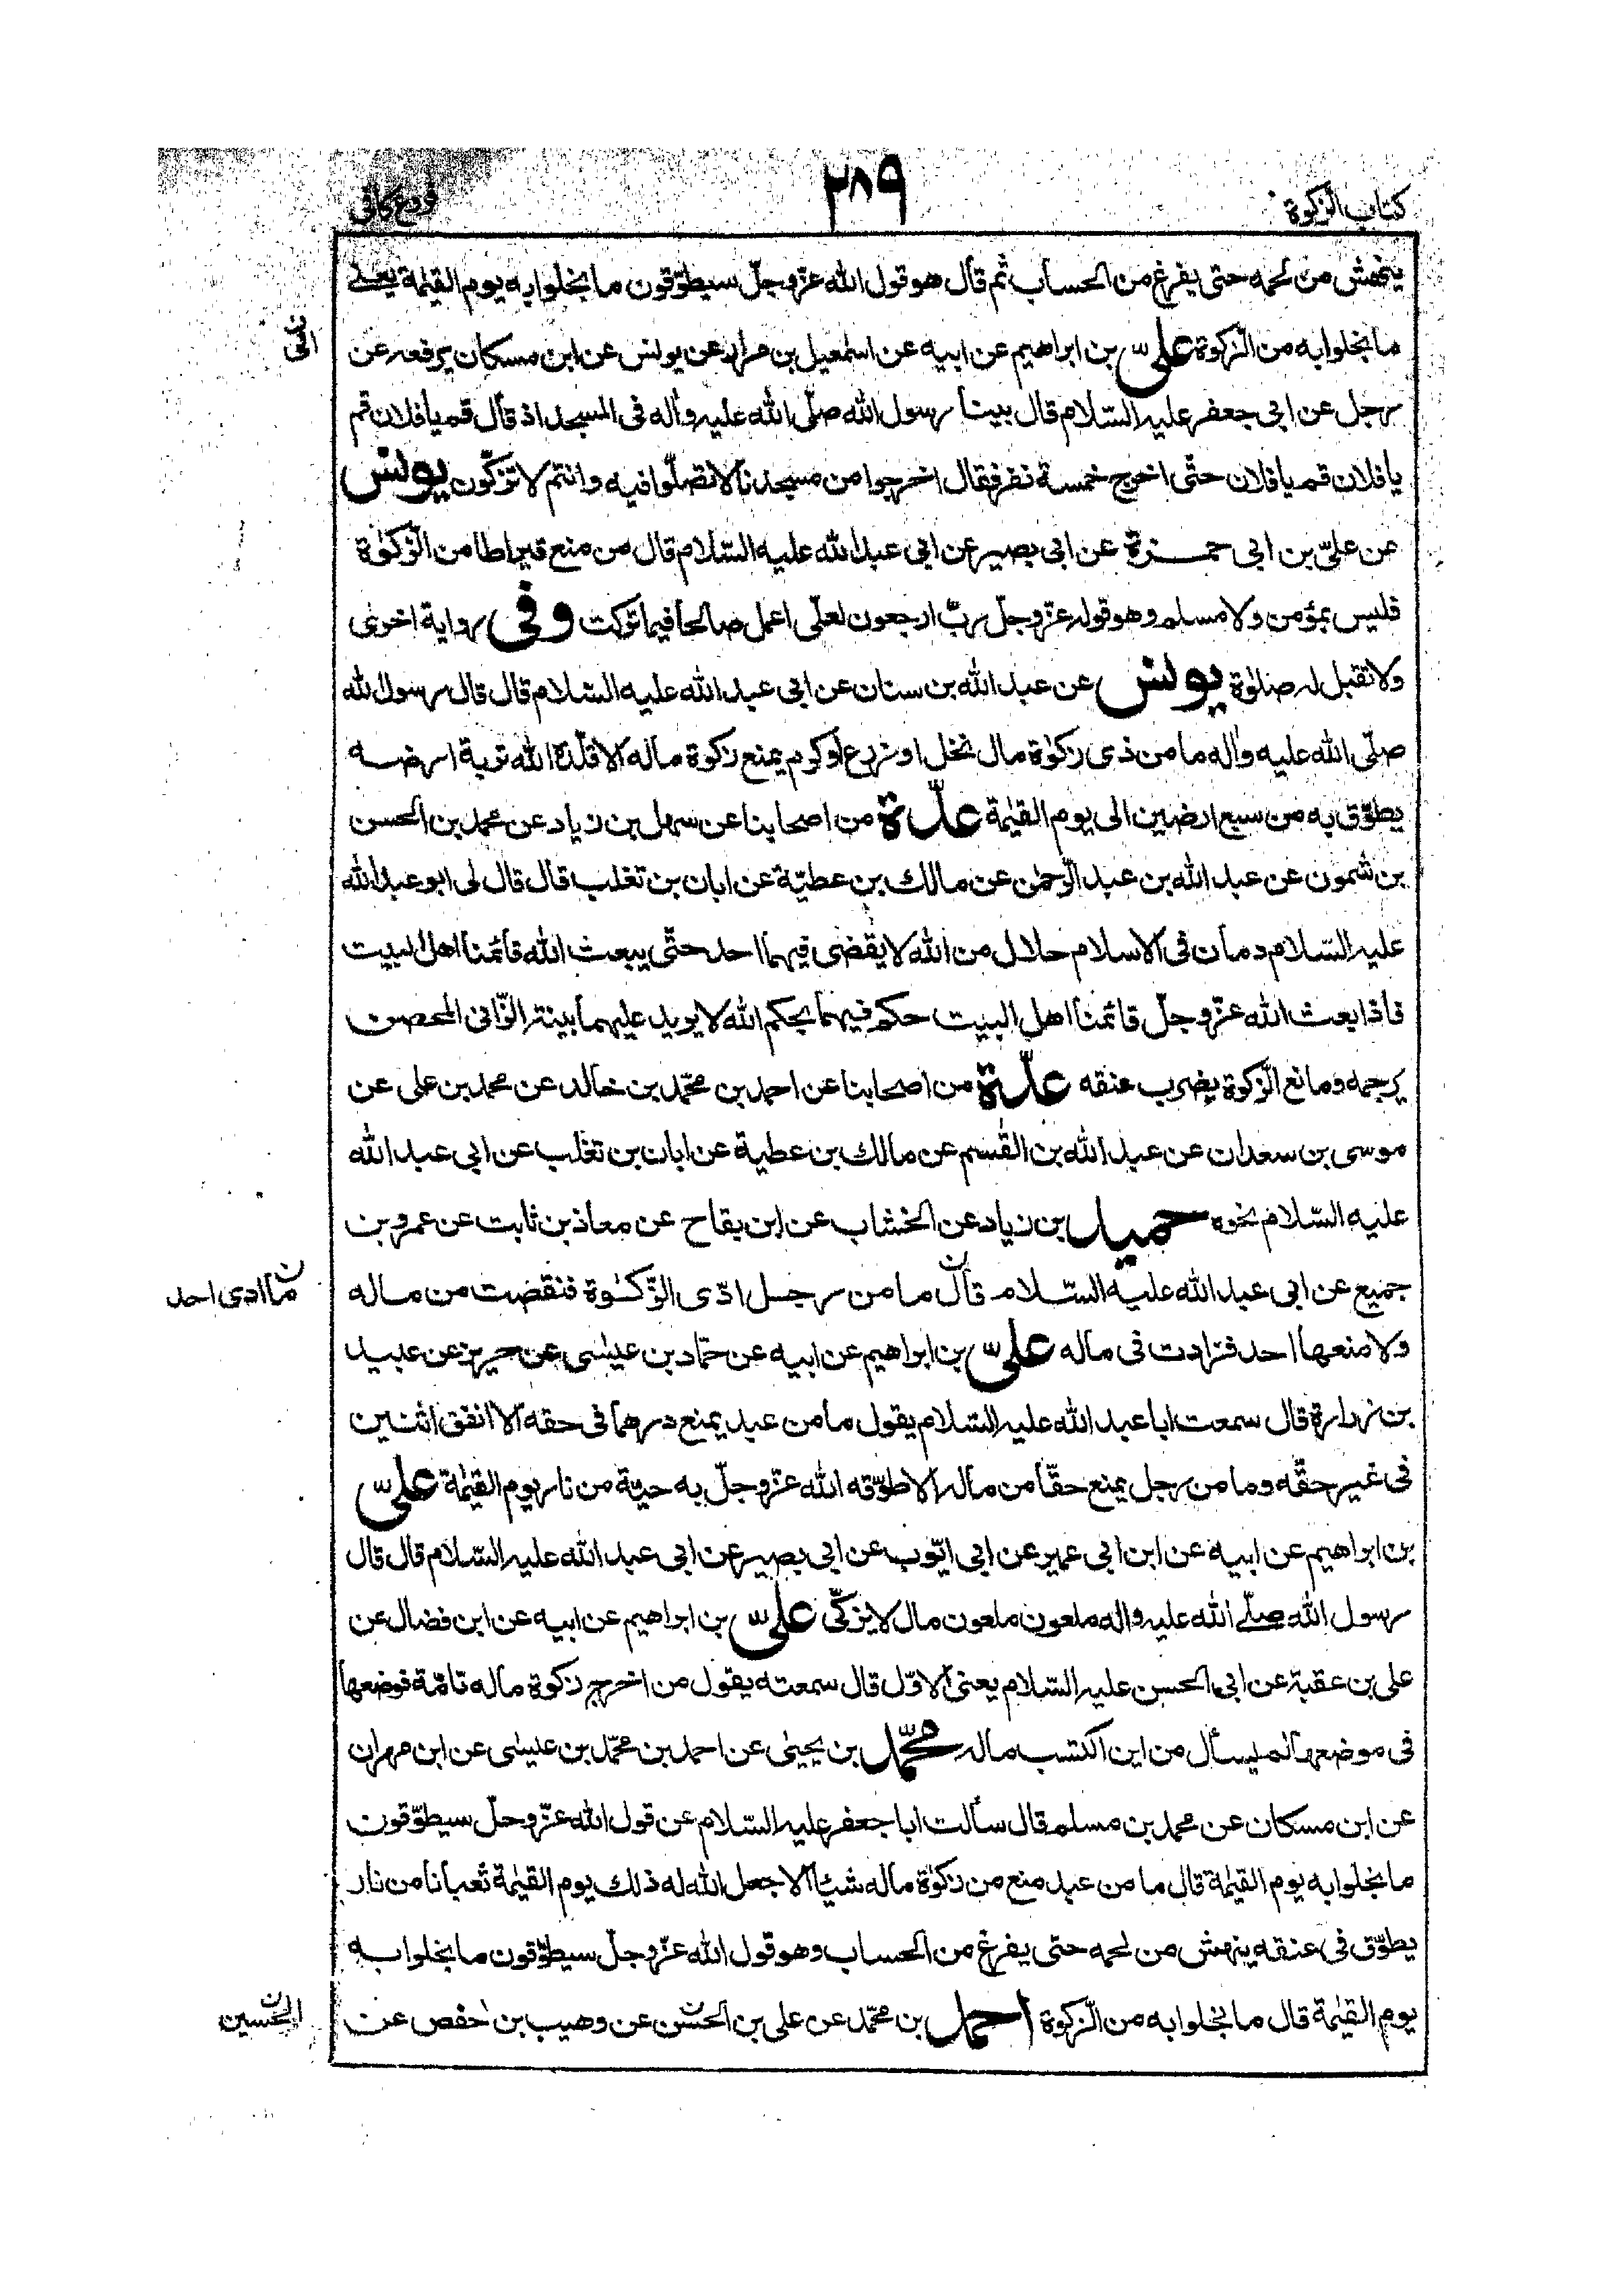 كتاب الزكوة
٢٨٩
فروع كافى
ينهش من لحمه حتى يفرغ من الحساب ثم قال هو قول الله عزّ وجلّ سيطوّقون ما بخلوا به يوم القيٰمة يعنى
ما بخلوا به من الزكوة علىّ بن ابراهيم عن ابيه عن اسمٰعيل بن مرار عن يونس عن ابن مسكان يرفعه عن
رجل عن ابى جعفر عليه السّلام قال بينا رسول الله صلّى الله عليه واٰله فى المسجد اذ قال قم يا فلان قم
يا فلان قم يا فلان حتّى اخرج خمسة نفر فقال اخرجوا من مسجدنا لا تصلّوا فيه وانتم لا تزكّون يونس
عن علىّ بن ابى حمزة عن ابى بصير عن ابى عبد الله عليه السّلام قال من منع قيراطا من الزّكوٰة
فليس بمؤمن ولا مسلم وهو قوله عزّ وجلّ ربّ ارجعون لعلّى اعمل صالحا فيما تركت وفى رواية اخرى
ولا تقبل له صلوٰة يونس عن عبد الله بن سنان عن ابى عبد الله عليه السّلام قال قال رسول الله
صلّى الله عليه واٰله ما من ذى زكوٰة مال نخل او زرع او كرم يمنع زكوة ماله الا قلّده الله تربة ارضه
يطوّق به من سبع ارضين الى يوم القيٰمة عدّة من اصحابنا عن سهل بن زياد عن محمد بن الحسن
بن شمون عن عبد الله بن عبد الرّحمٰن عن مالك بن عطيّة عن ابان بن تغلب قال قال لى ابو عبد الله
عليه السّلام دمان فى الاسلام حلال من الله لا يقضى فيهما احد حتّى يبعث الله قائمنا اهل البيت
فاذا بعث الله عزّ وجلّ قائمنا اهل البيت حكم فيهما بحكم الله لا يريد عليهما بينة الزّانى المحصن
يرجمه ومانع الزّكوة يضرب عنقه عدّة من اصحابنا عن احمد بن محمّد بن خالد عن محمد بن على عن
موسى بن سعدان عن عبد الله بن القٰسم عن مالك بن عطية عن ابان بن تغلب عن ابى عبد الله
عليه السّلام نحوه حميد بن زياد عن الخشاب عن ابن بقاح عن معاذ بن ثابت عن عمرو بن
جميع عن ابى عبد الله عليه السّلام قال ما من رجل ادّى الزّكوٰة فنقصت من ماله
ن
ما ادى احد
ولا منعها احد فزادت فى ماله علىّ بن ابراهيم عن ابيه عن حمّاد بن عيسٰى عن حريز عن عبيد
بن زرارة قال سمعت ابا عبد الله عليه السّلام يقول ما من عبد يمنع درهما فى حقه الا انفق اثنين
فى غير حقّه وما من رجل يمنع حقّا من ماله الا طوّقه الله عزّ وجلّ به حيّة من نار يوم القيٰمة علىّ
بن ابراهيم عن ابيه عن ابن ابى عمير عن ابى ايّوب عن ابى بصير عن ابى عبد الله عليه السّلام قال قال
رسول الله صلّى الله عليه واله ملعون ملعون مال لا يزكّى علىّ بن ابراهيم عن ابيه عن ابن فضال عن
على بن عقبة عن ابى الحسن عليه السّلام يعنى الاوّل قال سمعته يقول من اخرج زكوة ماله تامّة فوضعها
فى موضعها لم يسأل من اين اكتسب ماله محمّد بن يحيىٰ عن احمد بن محمّد بن عيسٰى عن ابن مهران
عن ابن مسكان عن محمد بن مسلم قال سألت ابا جعفر عليه السّلام عن قول الله عزّ وجلّ سيطوّقون
ما بخلوا به يوم القيٰمة قال ما من عبد منع من زكوٰة ماله شيئا الا جعل الله له ذلك يوم القيٰمة ثعبانا من نار
يطوّق فى عنقه ينهش من لحمه حتى يفرغ من الحساب وهو قول الله عزّ وجلّ سيطوّقون ما بخلوا به
يوم القيٰمة قال ما بخلوا به من الزّكوة احمد بن محمّد عن على بن الحسن عن وهيب بن حفص عن
ن
الحسين